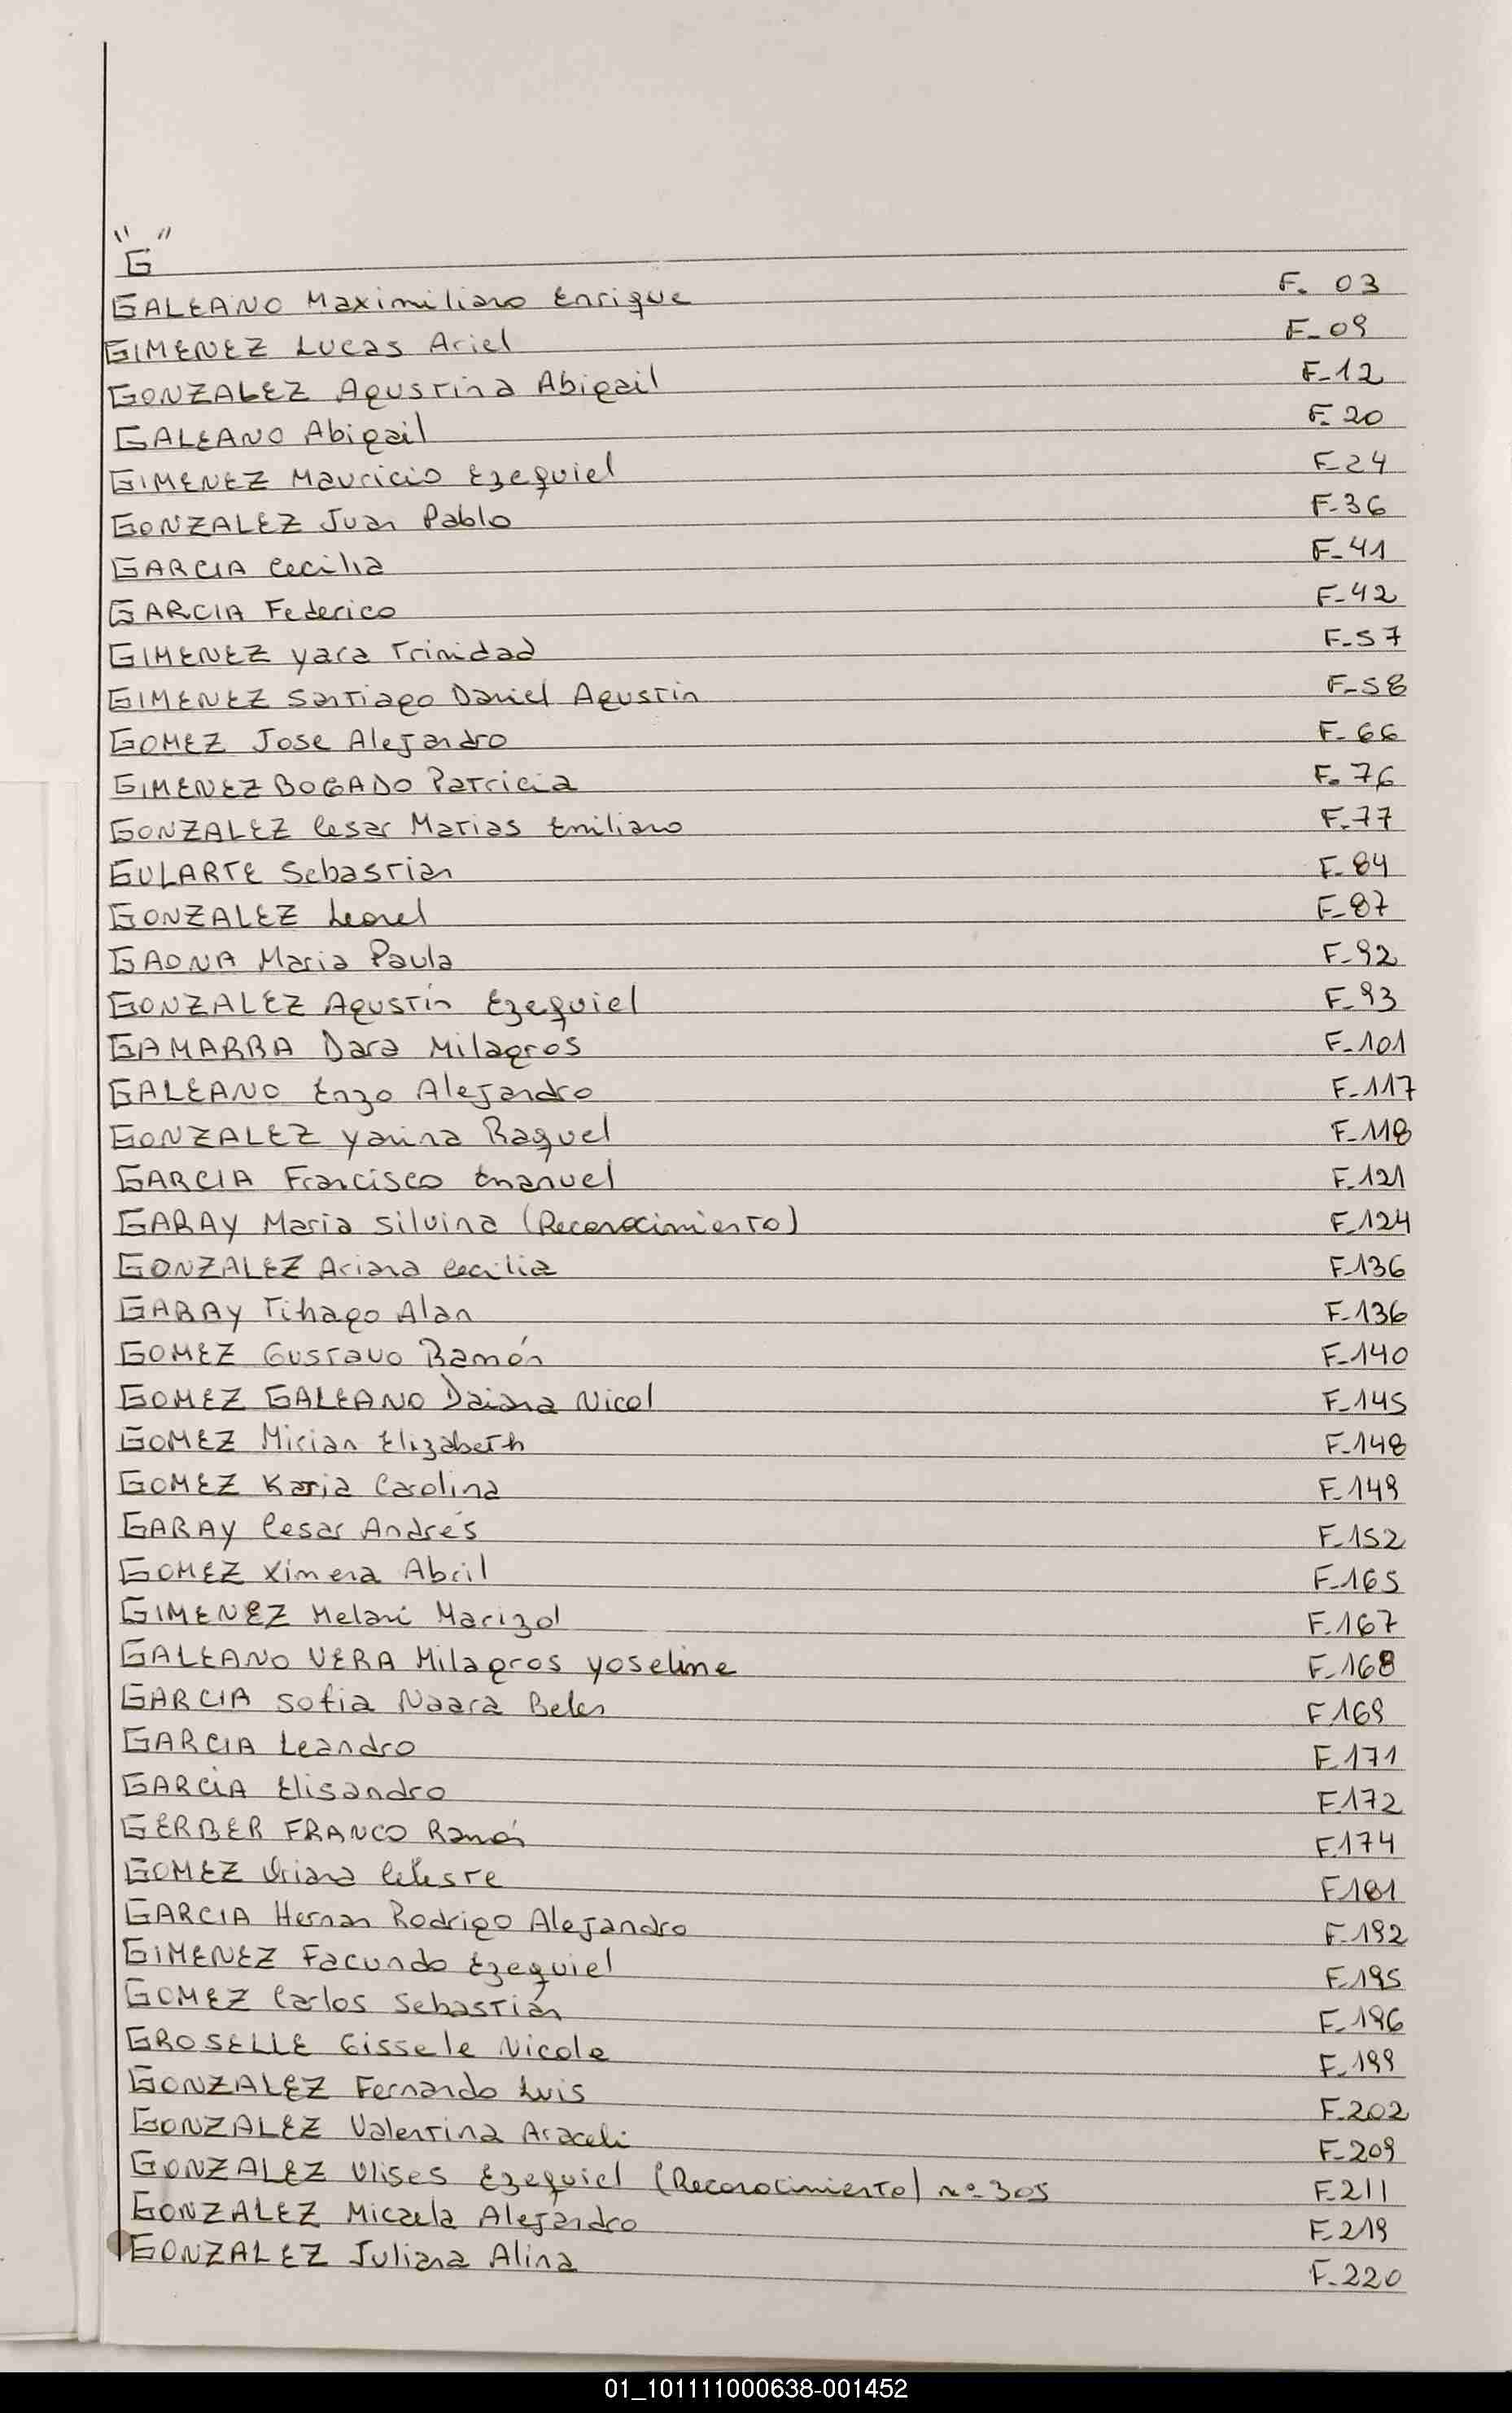 "G"
GALEANO Maximiliano Enrique F. 03
GIMENEZ Lucas Ariel F-09
GONZALEZ Agustina Abigail F-12
GALEANO Abigail F. 20
GIMENEZ Mauricio Ezequiel F-24
GONZALEZ Juan Pablo F-36
GARCIA Cecilia F-41
GARCIA Federico F-42
GIMENEZ yara Trinidad F-57
GIMENEZ Santiago Daniel Agustin F-58
GOMEZ Jose Alejandro F-66
GIMENEZ BOGADO Patricia F. 76
GONZALEZ Cesar Matias Emiliano F-77
GULARTE Sebastian F-84
GONZALEZ Leonel F-87
GAONA Maria Paula F-92
GONZALEZ Agustín Ezequiel F-93
GAMARRA Dara Milagros F-101
GALEANO Enzo Alejandro F-117
GONZALEZ yanina Raquel F-118
GARCIA Francisco Emanuel F-121
GARAY Maria silvina (Reconocimiento) F-124
GONZALEZ Ariana Cecilia F-136
GARAY Tihago Alan F-136
GOMEZ Gustavo Ramón F-140
GOMEZ GALEANO Daiana Nicol F-145
GOMEZ Mirian Elizabeth F-148
GOMEZ Karia Carolina F-149
GARAY Cesar Andrés F-152
GOMEZ Ximena Abril F-165
GIMENEZ Melani Marizol F-167
GALEANO VERA Milagros yoseline F-168
GARCIA sofia Naara Belen F-169
GARCIA Leandro F-171
GARCIA Elisandro F-172
GERBER FRANCO Ramón F-174
GOMEZ Oriana Celeste F-181
GARCIA Hernan Rodrigo Alejandro F-192
GIMENEZ Facundo Ezequiel F-195
GOMEZ Carlos Sebastián F-196
GROSELLE Gissele Nicole F-199
GONZALEZ Fernando Luis F-202
GONZALEZ Valentina Araceli F-209
GONZALEZ Ulises Ezequiel (Reconocimiento) nº 305 F-211
GONZALEZ Micaela Alejandro F-219
GONZALEZ Juliana Alina F-220
01_101111000638-001452